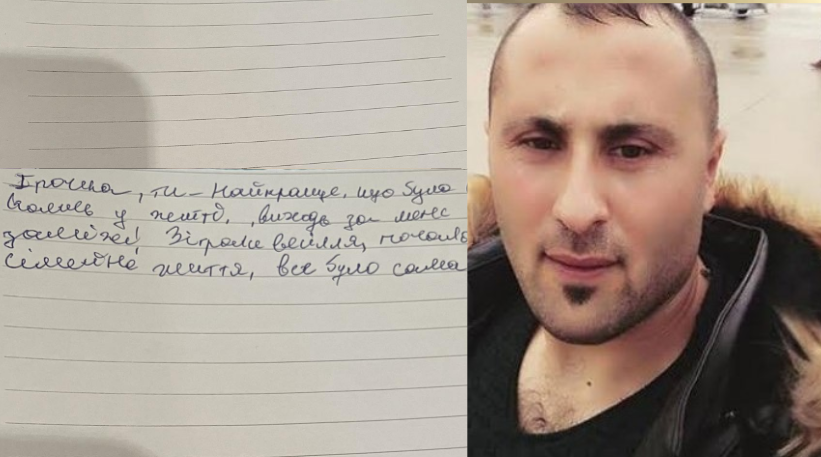 Ірочка, ти - найкраще, що було
колись у житті, вийдь за мене
заміж! Зіграли весілля, почало
сімейне життя, все було сама